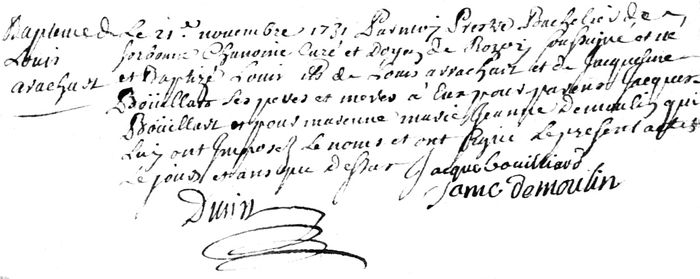 Bapteme de
Louis
arrachart
Le 21e novembre 1731 Par moy Pierre Bachelier de
sorbonne Chanoine Curé et Doyen de Rozoy soussigné est né
et Baptizé Louis fils de Louis arrachart et de Jacqueline
Boüillart ses peres et meres a Eu pour parein Jacques
Boüillart et pour mareinne marie Jeanne Demoulin qui
Luy ont imposez Le noms et ont signé Le present acte
Le jour et an que Dessus Jacque bouilliard
Jame demoulin